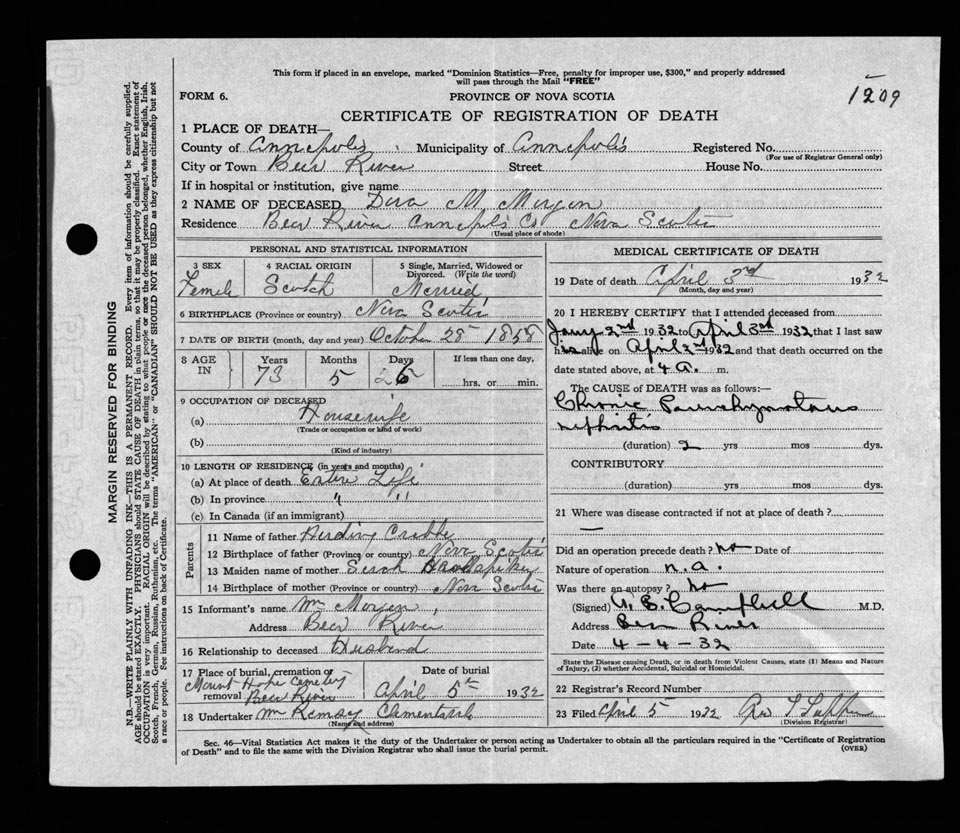 This form if placed in an envelope, marked "Dominion Statistics—Free, penalty for improper use, $300," and properly addressed
will pass through the Mail "FREE"
1209
FORM 6.
PROVINCE OF NOVA SCOTIA
CERTIFICATE OF REGISTRATION OF DEATH
1 PLACE OF DEATH—
County of Annapolis Municipality of Annapolis Registered No.
(For use of Registrar General only)
City or Town Bear River Street House No.
If in hospital or institution, give name
2 NAME OF DECEASED Dora M Morgan
Residence Bear River Annapolis Co Nova Scotia
(Usual place of abode)
PERSONAL AND STATISTICAL INFORMATION
3 SEX
Female
4 RACIAL ORIGIN
Scotch
5 Single, Married, Widowed or
Divorced. (Write the word)
Married
6 BIRTHPLACE (Province or country) Nova Scotia
7 DATE OF BIRTH (month, day and year) October 28 1858
8 AGE IN
Years Months Days If less than one day,
73 5 26 hrs. or min.
9 OCCUPATION OF DECEASED
(a) Housewife
(Trade or occupation or kind of work)
(b)
(Kind of industry)
10 LENGTH OF RESIDENCE (in years and months)
(a) At place of death Entire Life
(b) In province " "
(c) In Canada (if an immigrant)
Parents
11 Name of father Harding
12 Birthplace of father (Province or country) Nova Scotia
13 Maiden name of mother Sarah
14 Birthplace of mother (Province or country) Nova Scotia
15 Informant's name Wm Morgan
Address Bear River
16 Relationship to deceased Husband
17 Place of burial, cremation or
removal Mount Hope Cemetery
Bear River
Date of burial
April 5th 1932
18 Undertaker Wm Ramsay Clementsvale
(Name and address)
MEDICAL CERTIFICATE OF DEATH
19 Date of death April 3rd 1932
(Month, day and year)
20 I HEREBY CERTIFY that I attended deceased from
Jany 2nd 1932 to April 3rd 1932 that I last saw
h alive on April 2nd 1932 and that death occurred on the
date stated above, at 4 a. m.
The CAUSE of DEATH was as follows:—
Chronic Parenchymatous
nephritis
(duration) 2 yrs mos dys.
CONTRIBUTORY
(duration) yrs mos dys.
21 Where was disease contracted if not at place of death?
—
Did an operation precede death? no Date of
Nature of operation n.a.
Was there an autopsy? no
(Signed) Campbell M.D.
Address Bear River
Date 4-4-32
State the Disease causing Death, or in death from Violent Causes, state (1) Means and Nature
of Injury, (2) whether Accidental, Suicidal or Homicidal.
22 Registrar's Record Number
23 Filed April 5 1932
(Division Registrar)
Sec. 46—Vital Statistics Act makes it the duty of the Undertaker or person acting as Undertaker to obtain all the particulars required in the "Certificate of Registration
of Death" and to file the same with the Division Registrar who shall issue the burial permit.
(OVER)
MARGIN RESERVED FOR BINDING
N.B.—WRITE PLAINLY WITH UNFADING INK—THIS IS A PERMANENT RECORD. Every item of information should be carefully supplied.
AGE should be stated EXACTLY. PHYSICIANS should STATE CAUSE OF DEATH in plain terms, so that it may be properly classified. Exact statement of
OCCUPATION is very important. RACIAL ORIGIN will be described by stating to what people or race the deceased person belonged, whether English, Irish,
Scotch, French, German, Russian, Ruthenian, etc. The terms "AMERICAN" or "CANADIAN" SHOULD NOT BE USED as they express citizenship but not
a race or people. See instructions on back of Certificate.